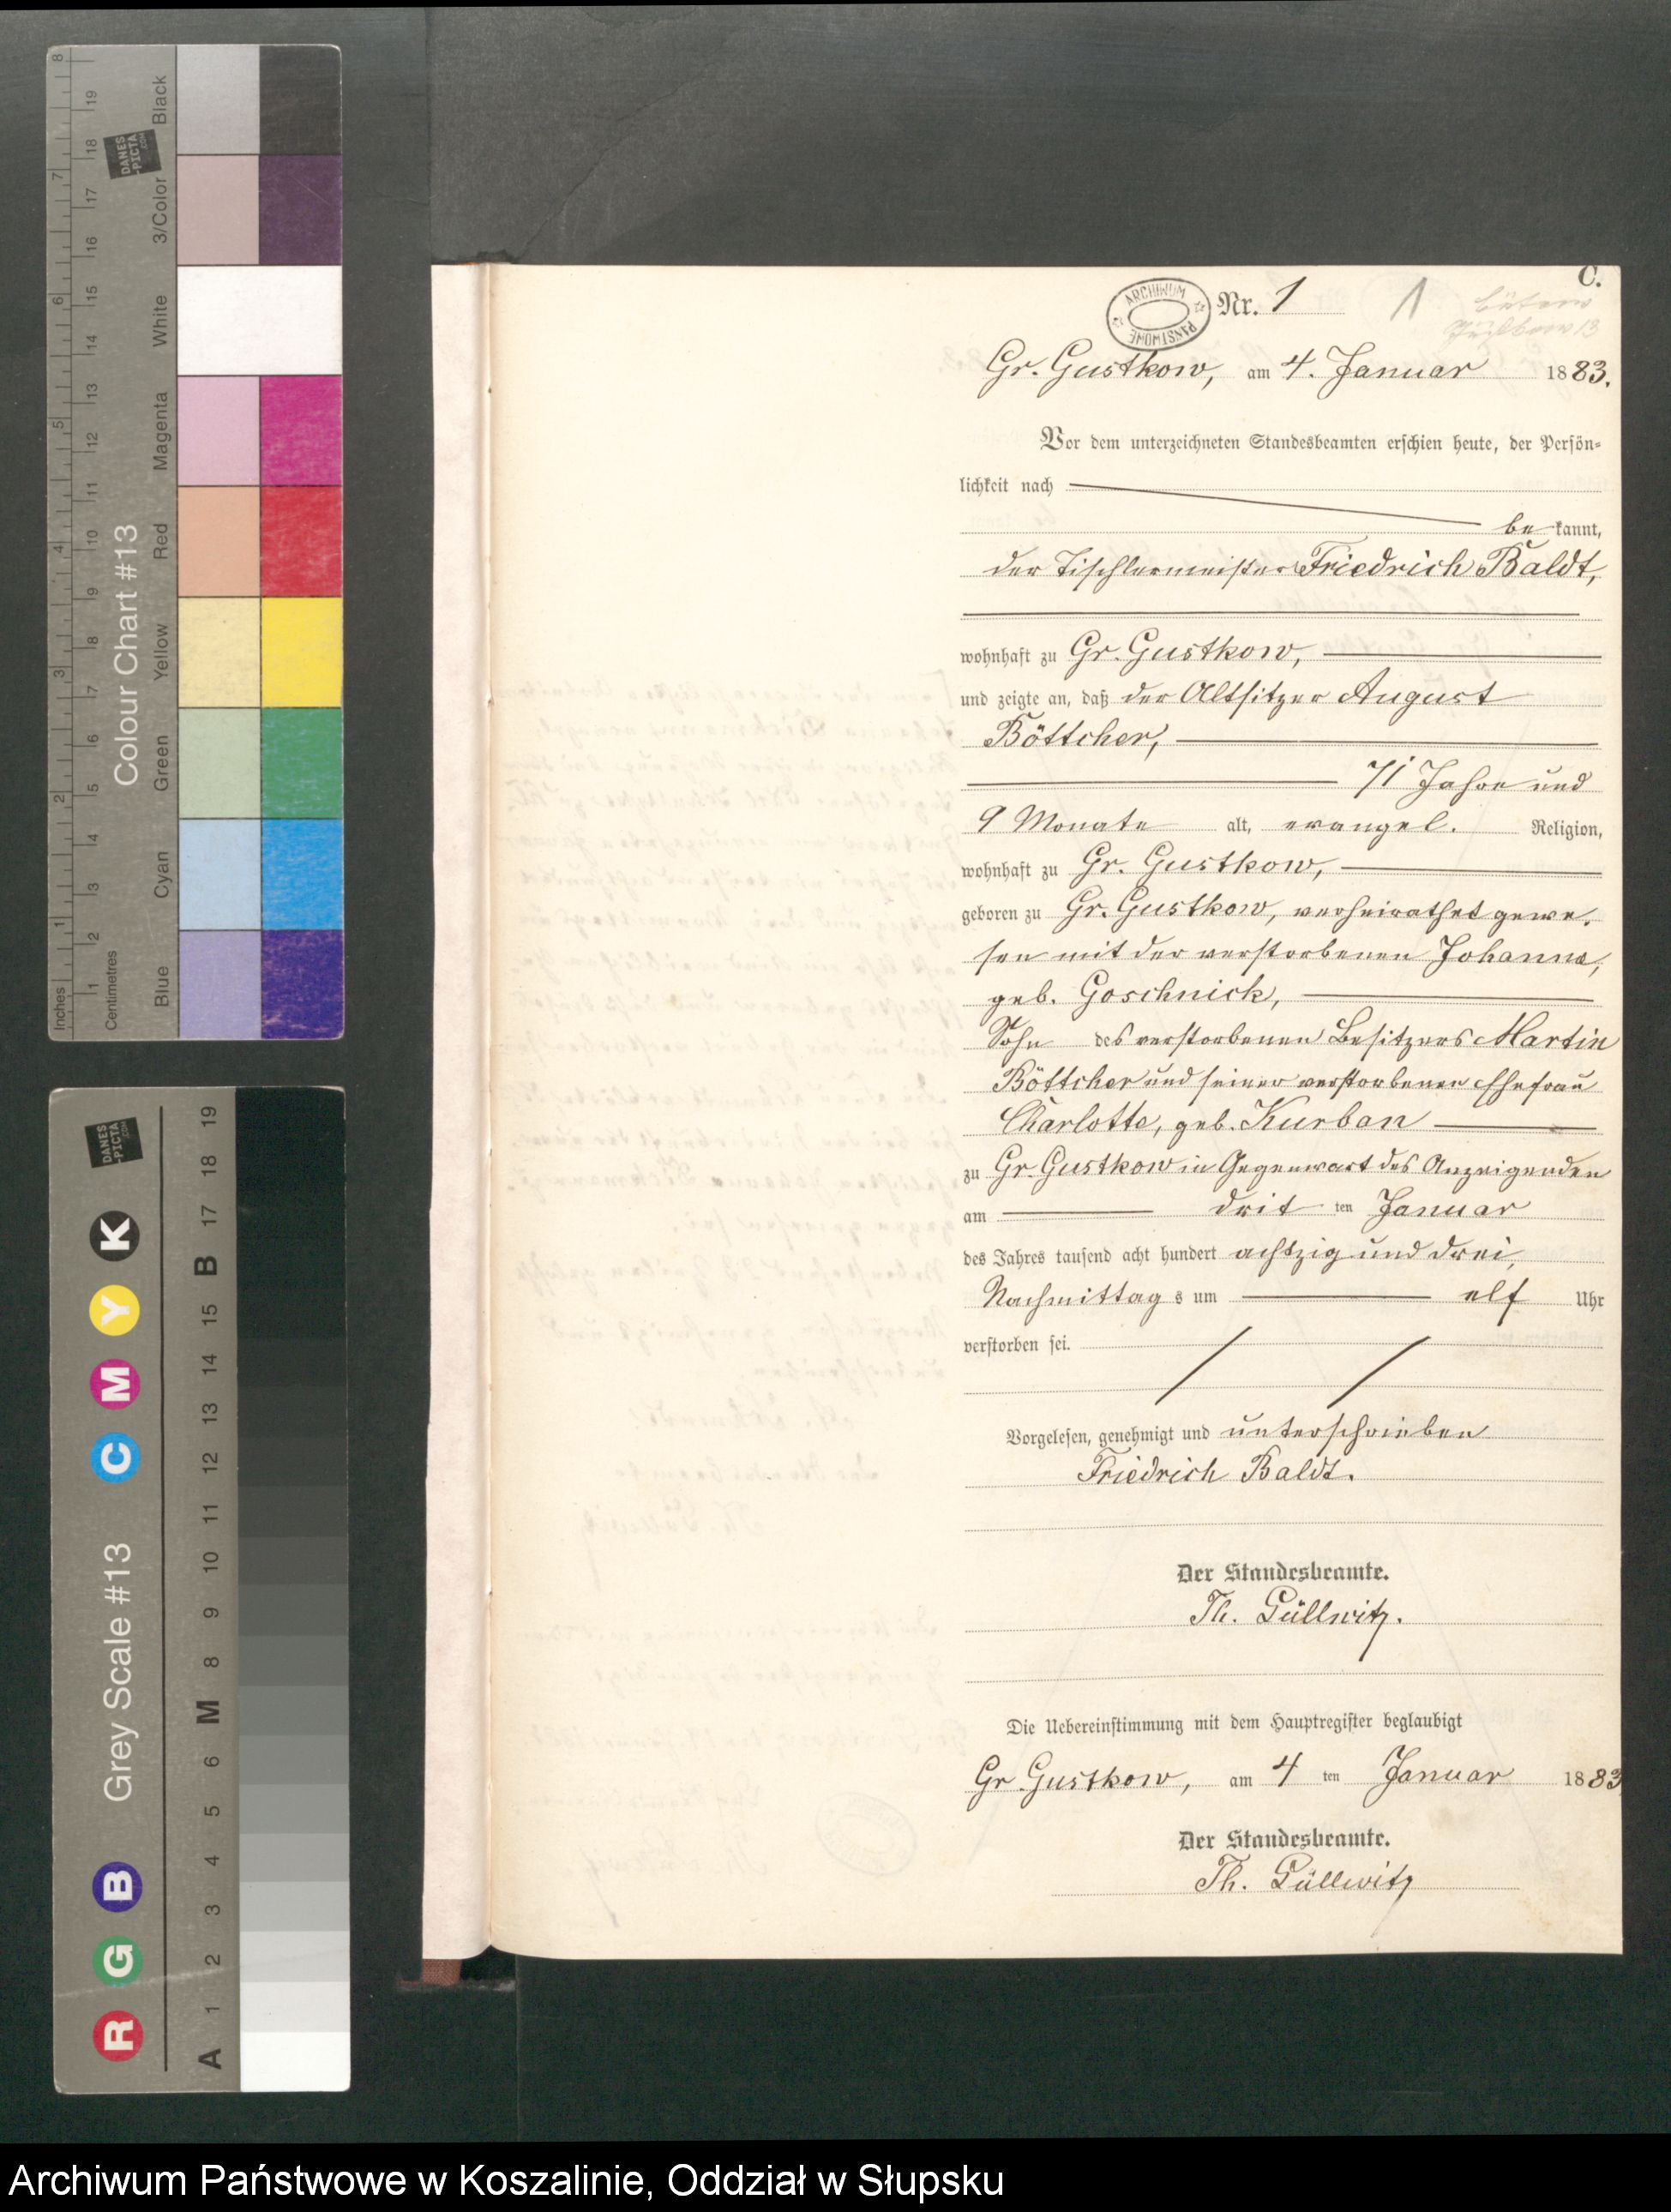 Inches
Centimetres
1 2 3 4 5 6 7 8
1 2 3 4 5 6 7 8 9 10 11 12 13 14 15 16 17 18 19
Colour Chart #13
DANES
-PICTA
.COM
Blue Cyan Green Yellow Red Magenta White 3/Color Black
DANES
-PICTA
.COM
R G B Grey Scale #13 C M Y K
A 1 2 3 4 5 6 M 8 9 10 11 12 13 14 15 B 17 18 19
C.
ARCHIWUM
PAŃSTWOWE
Nr. 1
1
Gr. Gustkow, am 4. Januar 1883.
Vor dem unterzeichneten Standesbeamten erschien heute, der Persön-
lichkeit nach
be kannt,
der Tischlermeister Friedrich Baldt,
wohnhaft zu Gr. Gustkow,
und zeigte an, daß der Altsitzer August
Böttcher,
71 Jahre und
9 Monate alt, evangel. Religion,
wohnhaft zu Gr. Gustkow,
geboren zu Gr. Gustkow, verheirathet gewe-
sen mit der verstorbenen Johanna,
geb. Goschnick,
Sohn des verstorbenen Besitzers Martin
Böttcher und seiner verstorbenen Ehefrau
Charlotte, geb. Kurban
zu Gr. Gustkow in Gegenwart des Anzeigenden
am drit ten Januar
des Jahres tausend acht hundert achtzig und drei,
Nachmittag s um elf Uhr
verstorben sei.
Vorgelesen, genehmigt und unterschrieben
Friedrich Baldt.
Der Standesbeamte.
Th. Güllwitz.
Die Uebereinstimmung mit dem Hauptregister beglaubigt
Gr. Gustkow, am 4 ten Januar 1883
Der Standesbeamte.
Th. Güllwitz
Archiwum Państwowe w Koszalinie, Oddział w Słupsku